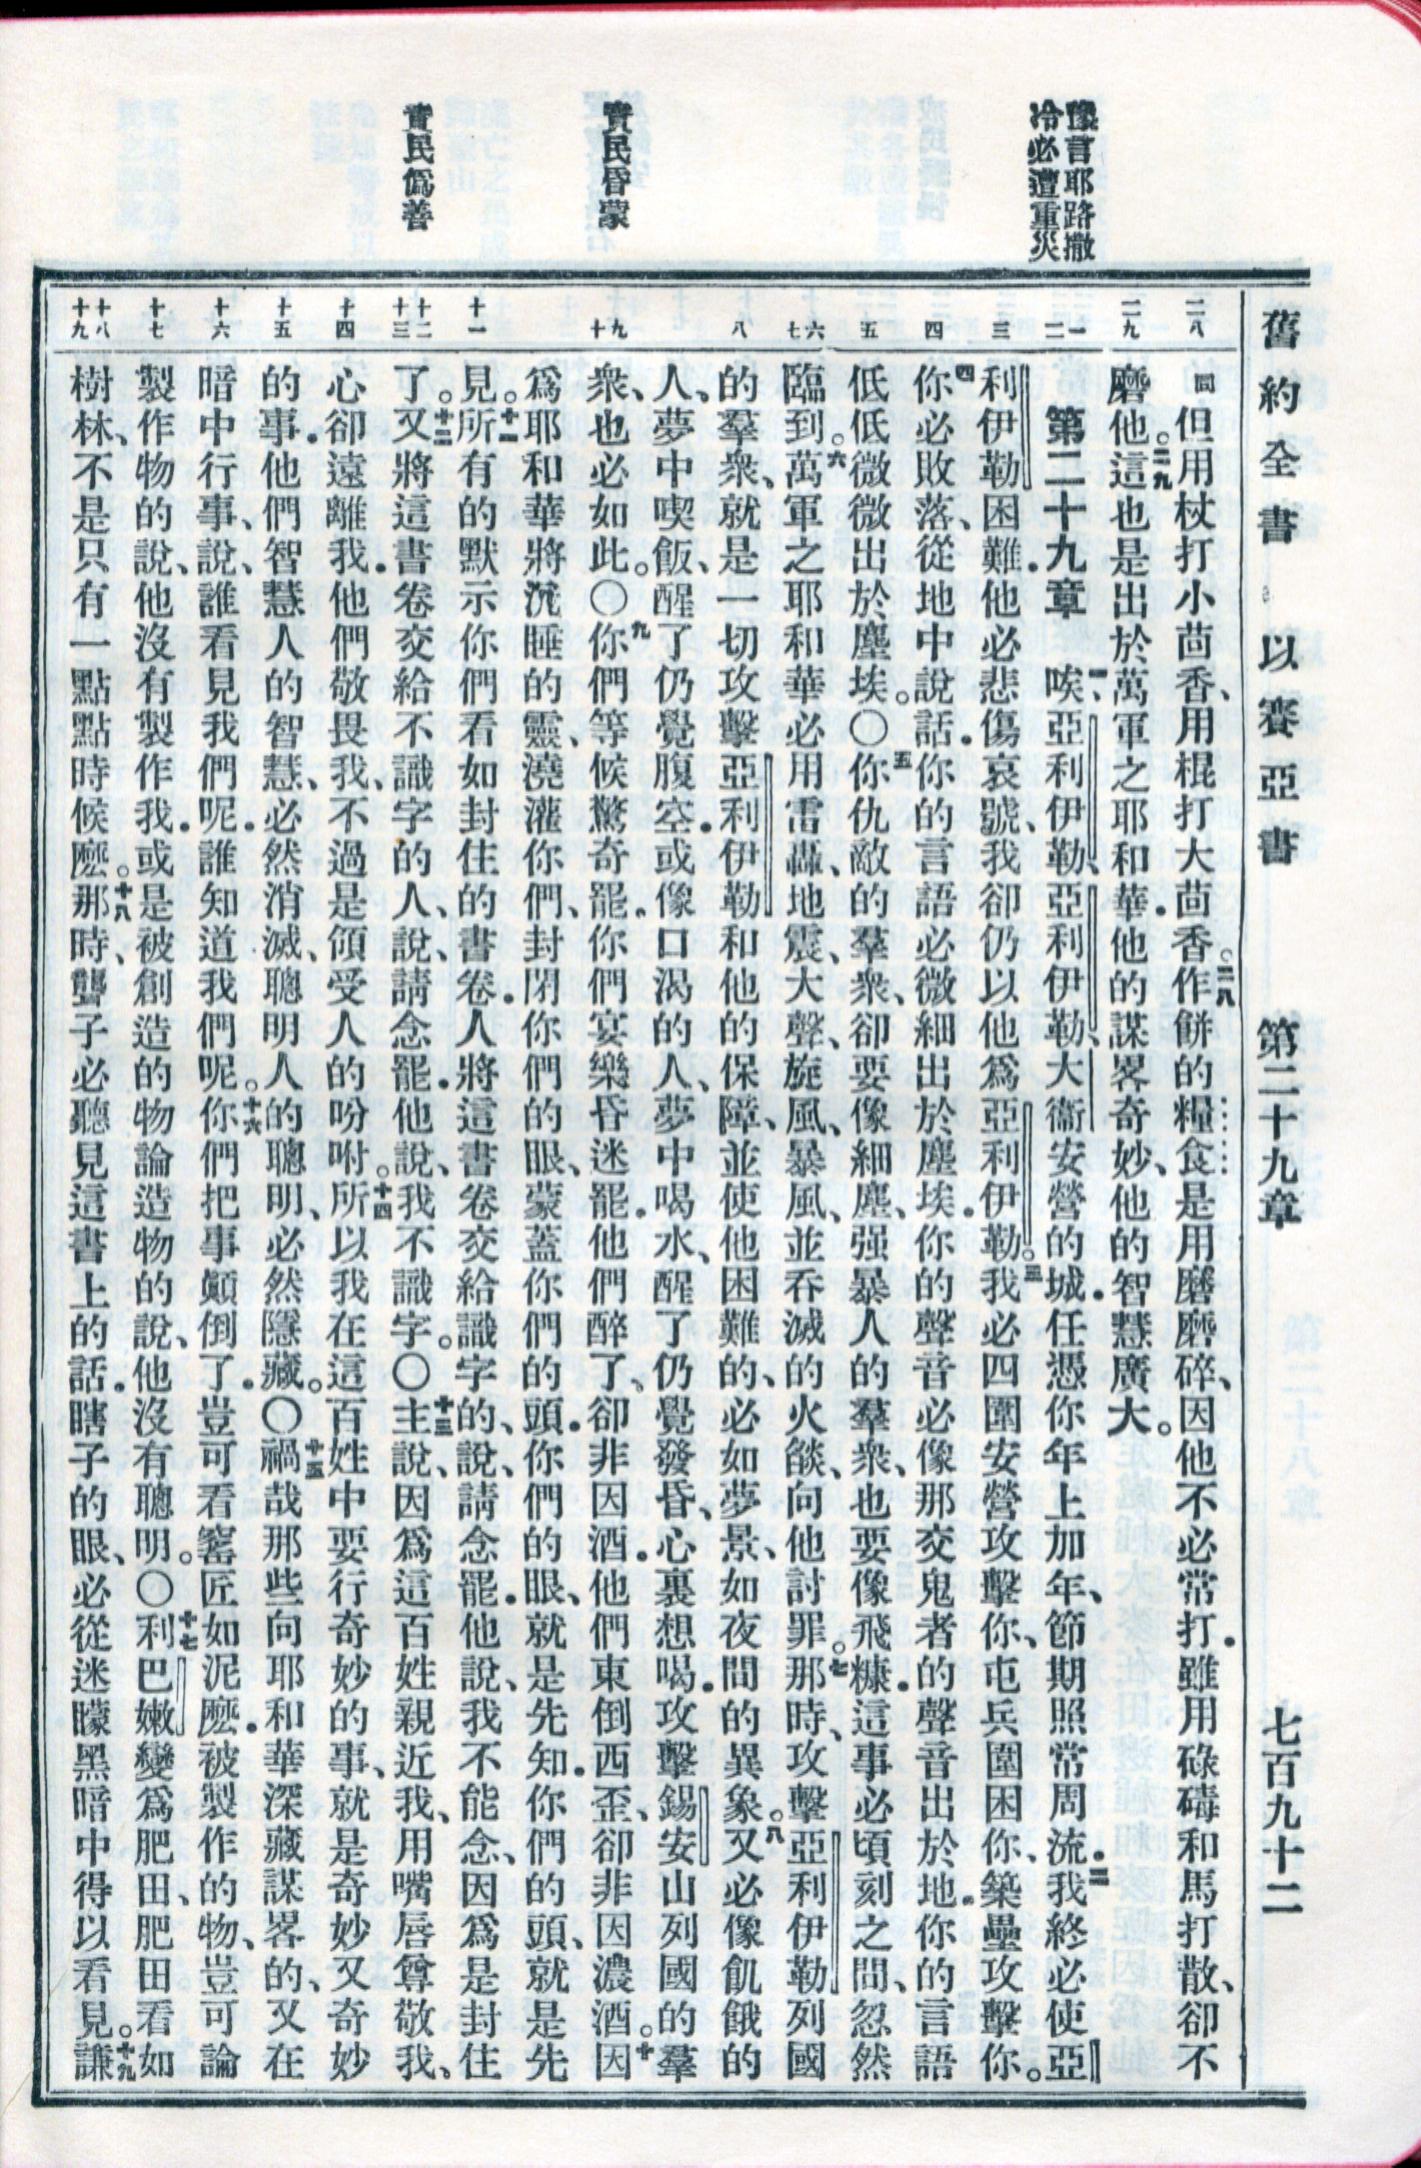 舊約全書 以賽亞書 第二十九章 七百九十二
豫言耶路撒
冷必遭重災
責民昏蒙
責民僞善
二八
二九
一
二
三
四
五
六
七
八
九
十
十一
十二
十三
十四
十五
十六
十七
十八
十九
但用杖打小茴香、用棍打大茴香。二八作餅的糧食是用磨磨碎、因他不必常打．雖用碌碡和馬打散、卻不
磨他。二九這也是出於萬軍之耶和華．他的謀畧奇妙、他的智慧廣大。
第二十九章 一唉、亞利伊勒、亞利伊勒、大衞安營的城．任憑你年上加年、節期照常周流．二我終必使亞
利伊勒困難．他必悲傷哀號、我卻仍以他爲亞利伊勒。三我必四圍安營攻擊你、屯兵圍困你、築壘攻擊你。
四你必敗落、從地中說話．你的言語必微細出於塵埃．你的聲音必像那交鬼者的聲音出於地．你的言語
低低微微出於塵埃。〇五你仇敵的羣衆、卻要像細塵、强暴人的羣衆、也要像飛糠．這事必頃刻之間、忽然
臨到。六萬軍之耶和華必用雷轟、地震、大聲、旋風、暴風、並吞滅的火燄、向他討罪。七那時、攻擊亞利伊勒列國
的羣衆、就是一切攻擊亞利伊勒和他的保障、並使他困難的、必如夢景、如夜間的異象。八又必像飢餓的
人、夢中喫飯、醒了仍覺腹空．或像口渴的人、夢中喝水、醒了仍覺發昏、心裏想喝．攻擊錫安山列國的羣
衆、也必如此。〇九你們等候驚奇罷．你們宴樂昏迷罷．他們醉了、卻非因酒．他們東倒西歪、卻非因濃酒。十因
爲耶和華將沉睡的靈、澆灌你們、封閉你們的眼、蒙蓋你們的頭．你們的眼、就是先知．你們的頭、就是先
見。十一所有的默示你們看如封住的書卷．人將這書卷交給識字的、說、請念罷．他說、我不能念、因爲是封住
了。十二又將這書卷交給不識字的人、說、請念罷．他說、我不識字。〇十三主說、因爲這百姓親近我、用嘴唇尊敬我、
心卻遠離我．他們敬畏我、不過是領受人的吩咐。十四所以我在這百姓中要行奇妙的事、就是奇妙又奇妙
的事．他們智慧人的智慧、必然消滅、聰明人的聰明、必然隱藏。〇十五禍哉那些向耶和華深藏謀畧的、又在
暗中行事、說、誰看見我們呢．誰知道我們呢。十六你們把事顚倒了．豈可看窰匠如泥麼．被製作的物、豈可論
製作物的說、他沒有製作我．或是被創造的物論造物的說、他沒有聰明。〇十七利巴嫩變爲肥田、肥田看如
樹林、不是只有一點點時候麼。十八那時、聾子必聽見這書上的話．瞎子的眼、必從迷矇黑暗中得以看見。十九謙